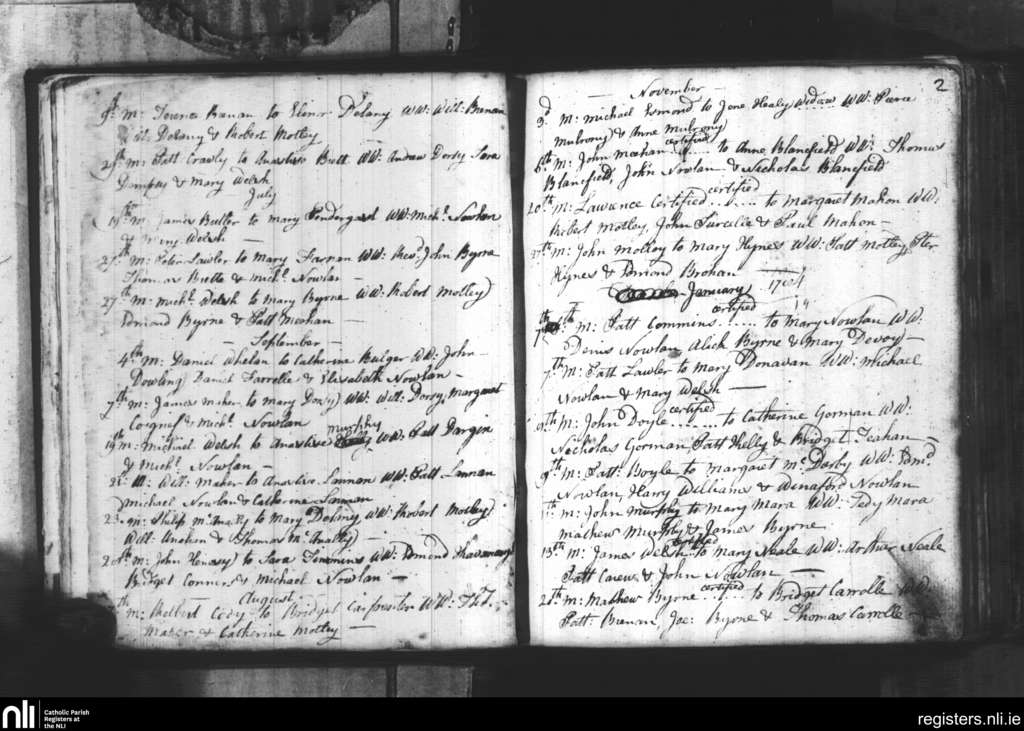 m: Terence Brenan to Elinor Delany WW: Will: Brenan
Delany & Robert Motley
m: Patt Crawly to Anastice Brett WW: Andrew Dorsy Sara
Dempsy & Mary Welsh
July
m: James Butler to Mary Pendergast WW: Mich: Nowlan
& Mary Welsh —
27th m: Peter Lawler to Mary Farnan WW: John Byrne
Thomas & Mich: Nowlan —
27th m: Mich: Welsh to Mary Byrne WW: Robert Motley
Edmond Byrne & Patt Meahan —
— September —
4th m: Daniel Whelan to Catherine Bulger WW: John
Dowling Daniel Farrelle & Elisabeth Nowlan —
7th m: James Maher to Mary WW: Will: Dorcy, Margaret
& Mich: Nowlan
19th m: Michael Welsh to Anastice Murphy WW: Patt
& Mich: Nowlan —
22 m: Will: Maher to Anastice Lannan WW: Patt Lannan
Michael Nowlan & Catherine Lannan
m: Philip to Mary Delany WW: Robert Motley
Will: & Thomas
m: John to Sara Timmins WW: Edmond
Bridget Connors & Michael Nowlan —
August
m: Robert Cody to Bridget Carpenter WW:
Maher & Catherine Motley —
2
— November —
3d m: Michael Esmond to Jone Healy Widow WW: Pierce
Mulrony & Anne Mulrony
certified
6th m: John Meahan ..... to Anne Blanchfield WW: Thomas
Blanefield, John Nowlan & Nicholas Blanefield
certified
20th m: Lawrence Certified ..... to Margaret Mahon WW:
Robert Motley, John & Paul Mahon —
m: John Molloy to Mary Hynes WW: Patt Motley, Peter
Hynes & Edmond Brohan
January
certified
7th m: Patt Commins ..... to Mary Nowlan WW:
Denis Nowlan Alick Byrne & Mary Devoy —
7th m: Patt Lawler to Mary Donavan WW: Michael
Nowlan & Mary Welsh —
certified
m: John Doyle ..... to Catherine Gorman WW:
Nicholas Gorman, Patt Kelly & Bridget Teahan —
9th m: Patt: Boyle to Margaret McDarby WW: Edmd
Nowlan, Harry Williams & Winaford Nowlan
m: John Murphy to Mary Mara WW: Tedy Mara
Mathew Murphy & James Byrne
certified
13th m: James Welsh .. to Mary Neale WW: Arthur Neale
Patt Carew & John Nowlan —
certified
m: Mathew Byrne ..... to Bridget Carrolle WW:
Patt: Brenan, Joe: Byrne & Thomas Carrolle
nli
Catholic Parish
Registers at
the NLI
registers.nli.ie